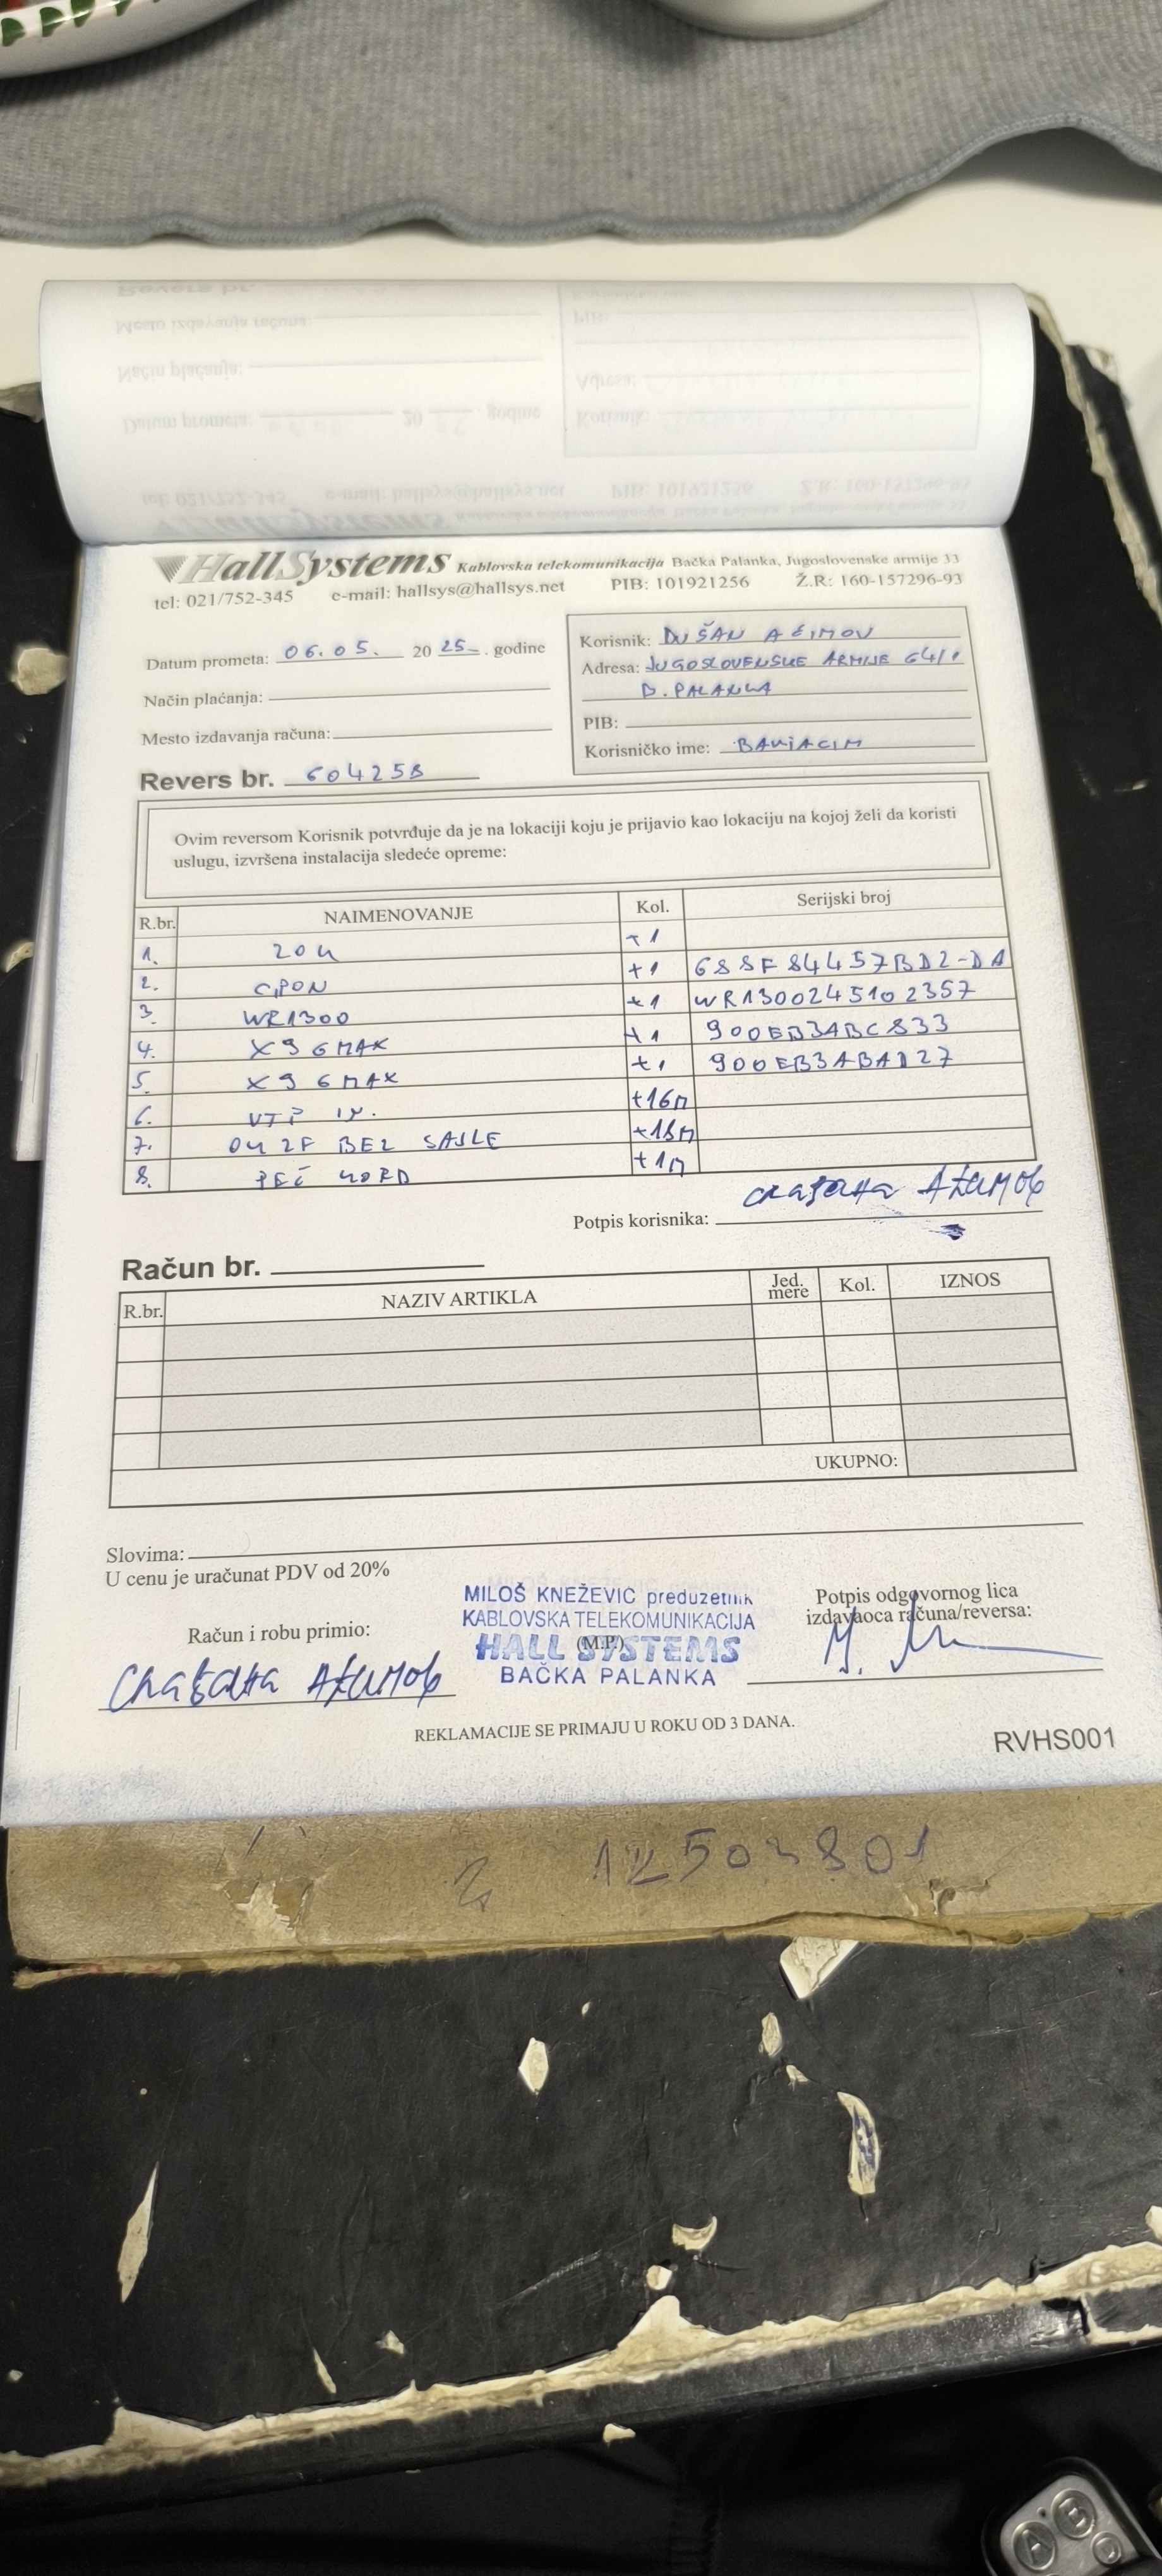 HallSystems Kablovska telekomunikacija Bačka Palanka, Jugoslovenske armije 33
tel: 021/752-345 e-mail: hallsys@hallsys.net PIB: 101921256 Ž.R: 160-157296-93
Datum prometa: 06.05. 20 25 . godine
Način plaćanja:
Mesto izdavanja računa:
Korisnik: DUŠAN AĆIMOV
Adresa: JUGOSLOVENSKE ARMIJE 64/1
B. PALANKA
PIB:
Korisničko ime: BAKIACIM
Revers br. 604258
Ovim reversom Korisnik potvrđuje da je na lokaciji koju je prijavio kao lokaciju na kojoj želi da koristi
uslugu, izvršena instalacija sledeće opreme:
R.br. NAIMENOVANJE Kol. Serijski broj
1. ZOK +1
2. GPON +1 688F84457BD2-DA
3. WR1300 +1 WR1300245102357
4. X96MAX +1 900EB3ABC833
5. X96MAX +1 900EB3ABAD27
6. UTP IN. +16m
7. OK 2F BEZ SAJLE +18m
8. PEČ KORD +1m
Potpis korisnika: Слађана Аћимов
Račun br.
R.br. NAZIV ARTIKLA Jed. mere Kol. IZNOS
UKUPNO:
Slovima:
U cenu je uračunat PDV od 20%
Račun i robu primio:
Слађана Аћимов
MILOŠ KNEŽEVIC preduzetnik
KABLOVSKA TELEKOMUNIKACIJA
(M.P.)
HALL SYSTEMS
BAČKA PALANKA
Potpis odgovornog lica
izdavaoca računa/reversa:
REKLAMACIJE SE PRIMAJU U ROKU OD 3 DANA.
RVHS001
A
B